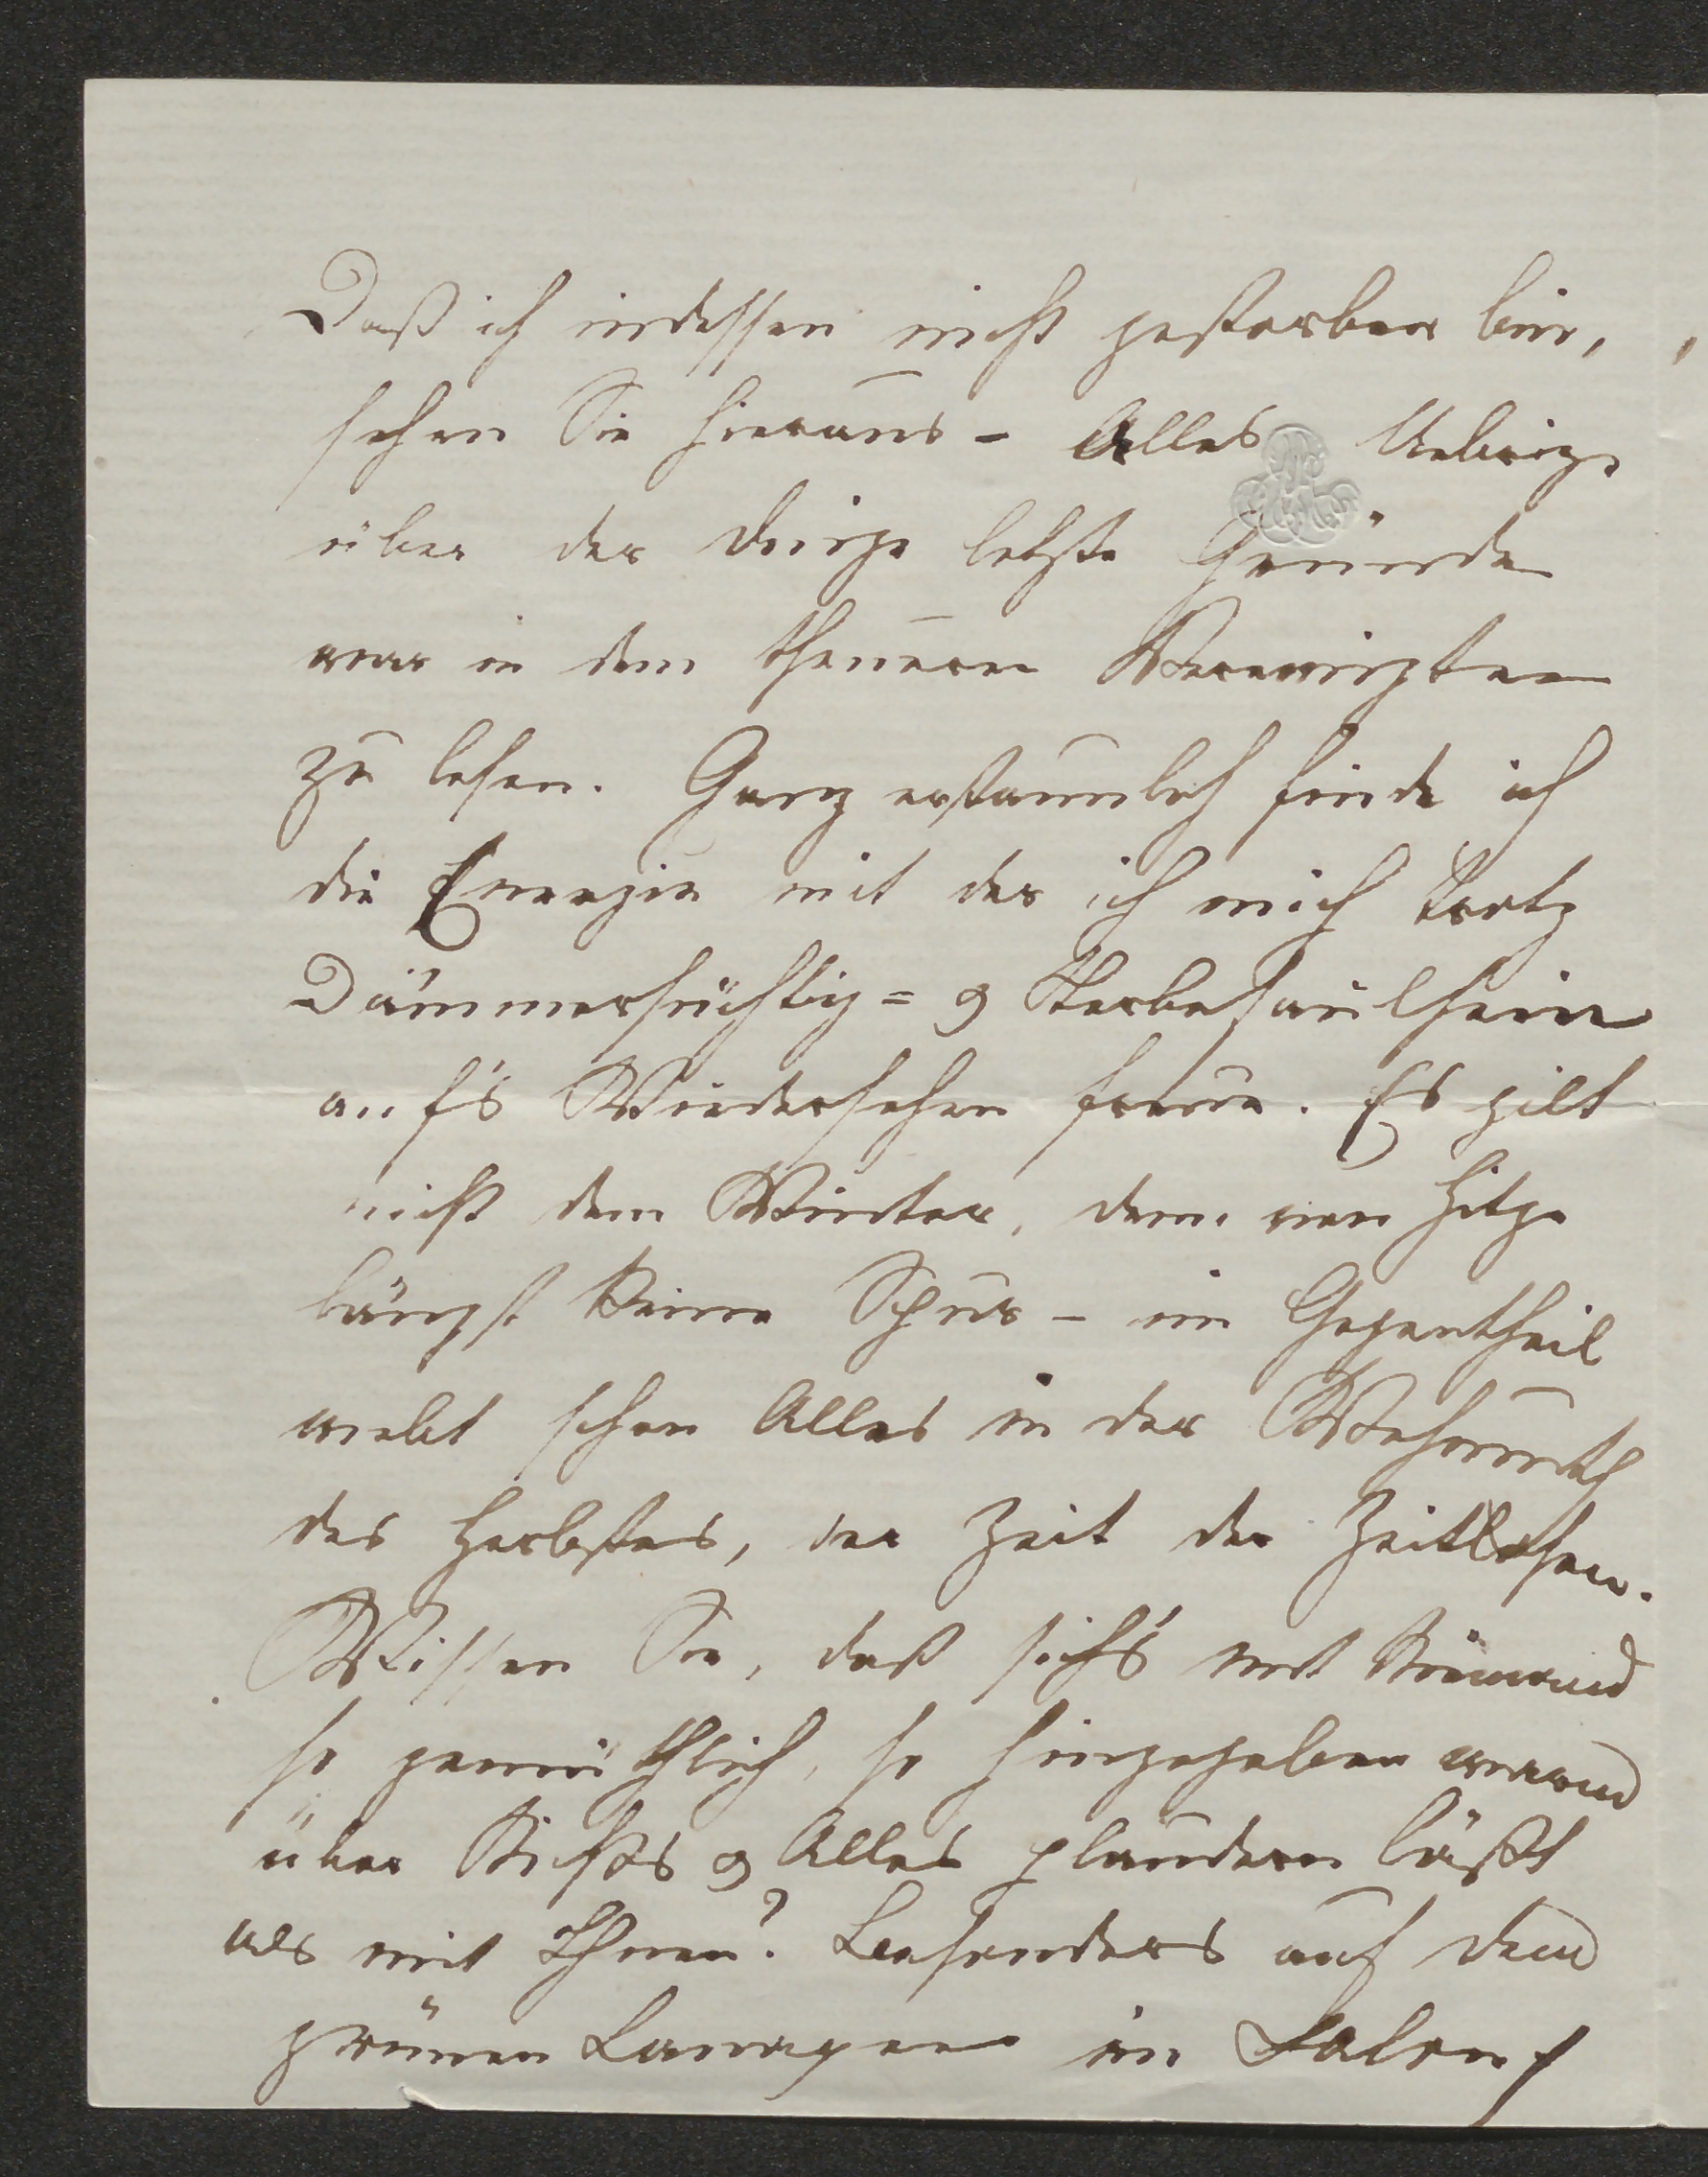 Daß ich indessen nicht gestorben bin,
sehen Sie hieraus - Alles Uebrige
über der Dinge letzte Gründe
war in dem theuern Verewigten
zu lesen. Ganz erstaunlich finde ich
die Energie mit der ich mich trotz
Dämmersüchtig= & Sterbefaulsein
auf's Wiedersehen freue. Es gilt
nicht dem Winter, denn von Hitze
längst keine Spur - im Gegentheil
webt schon Alles in der Wehmuth
des Herbstes, der Zeit der Zeitlosen.
Wissen Sie, daß sich's mit Niemand
so gemüthlich, so hingegeben
über Nichts & Alles plaudern läßt
als mit Ihnen? Besonders auf dem
grünen Canapee im Salon